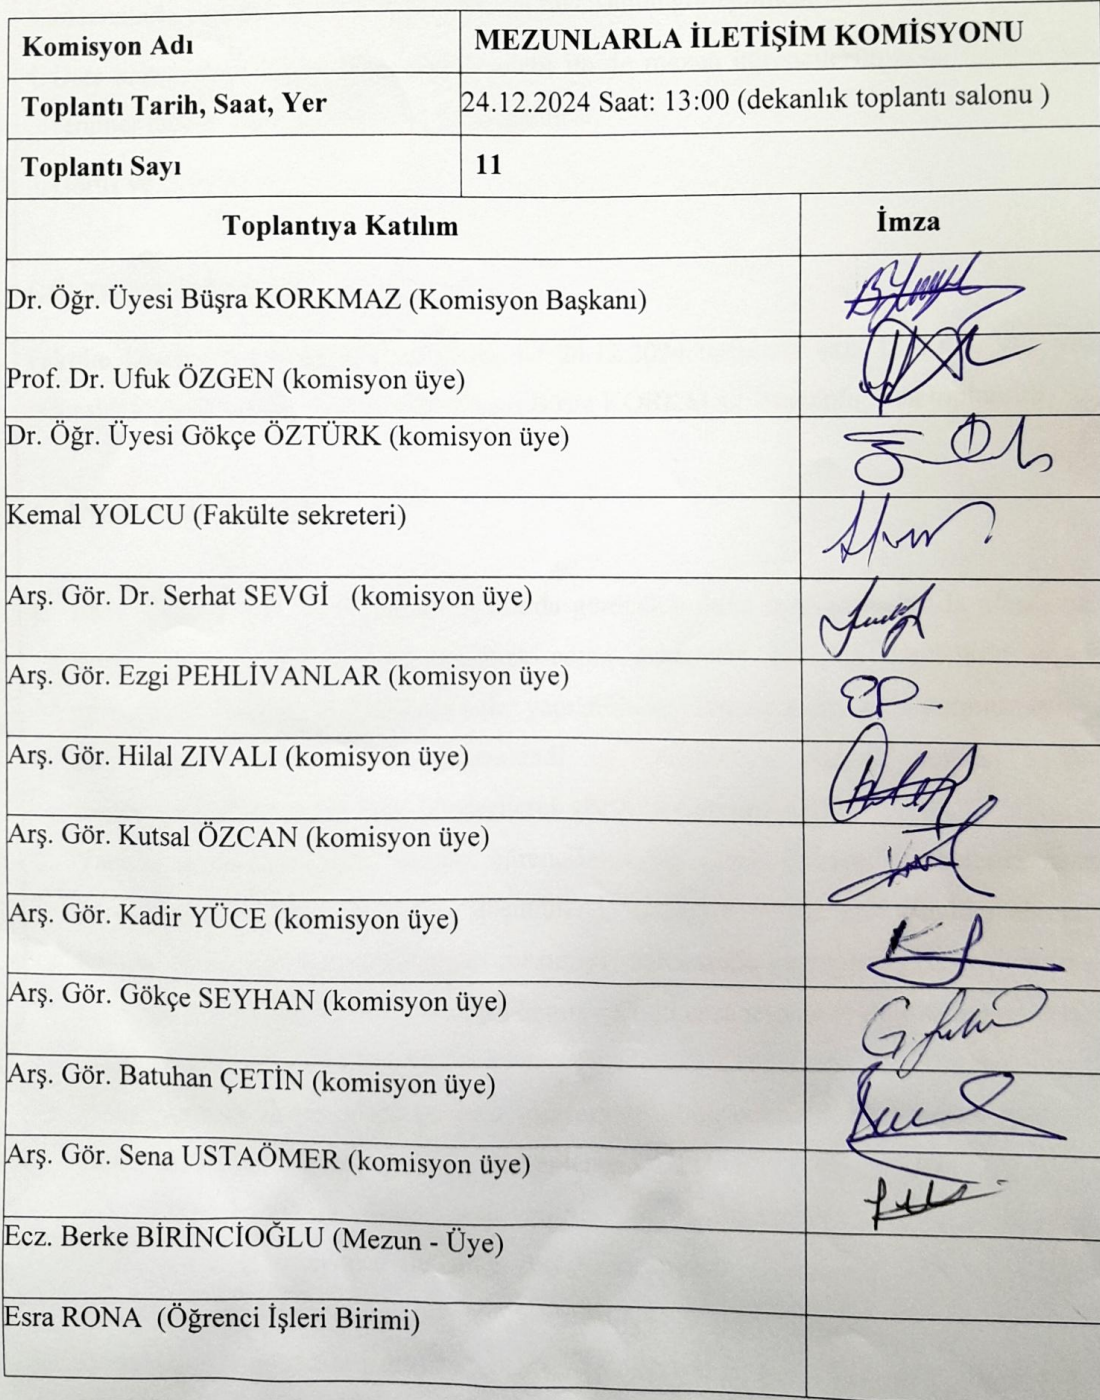 Komisyon Adı
MEZUNLARLA İLETİŞİM KOMİSYONU
Toplantı Tarih, Saat, Yer
24.12.2024 Saat: 13:00 (dekanlık toplantı salonu )
Toplantı Sayı
11
Toplantıya Katılım
İmza
Dr. Öğr. Üyesi Büşra KORKMAZ (Komisyon Başkanı)
Prof. Dr. Ufuk ÖZGEN (komisyon üye)
Dr. Öğr. Üyesi Gökçe ÖZTÜRK (komisyon üye)
Kemal YOLCU (Fakülte sekreteri)
Arş. Gör. Dr. Serhat SEVGİ (komisyon üye)
Arş. Gör. Ezgi PEHLİVANLAR (komisyon üye)
EP
Arş. Gör. Hilal ZIVALI (komisyon üye)
Arş. Gör. Kutsal ÖZCAN (komisyon üye)
Arş. Gör. Kadir YÜCE (komisyon üye)
Arş. Gör. Gökçe SEYHAN (komisyon üye)
Arş. Gör. Batuhan ÇETİN (komisyon üye)
Arş. Gör. Sena USTAÖMER (komisyon üye)
Ecz. Berke BİRİNCİOĞLU (Mezun - Üye)
Esra RONA (Öğrenci İşleri Birimi)